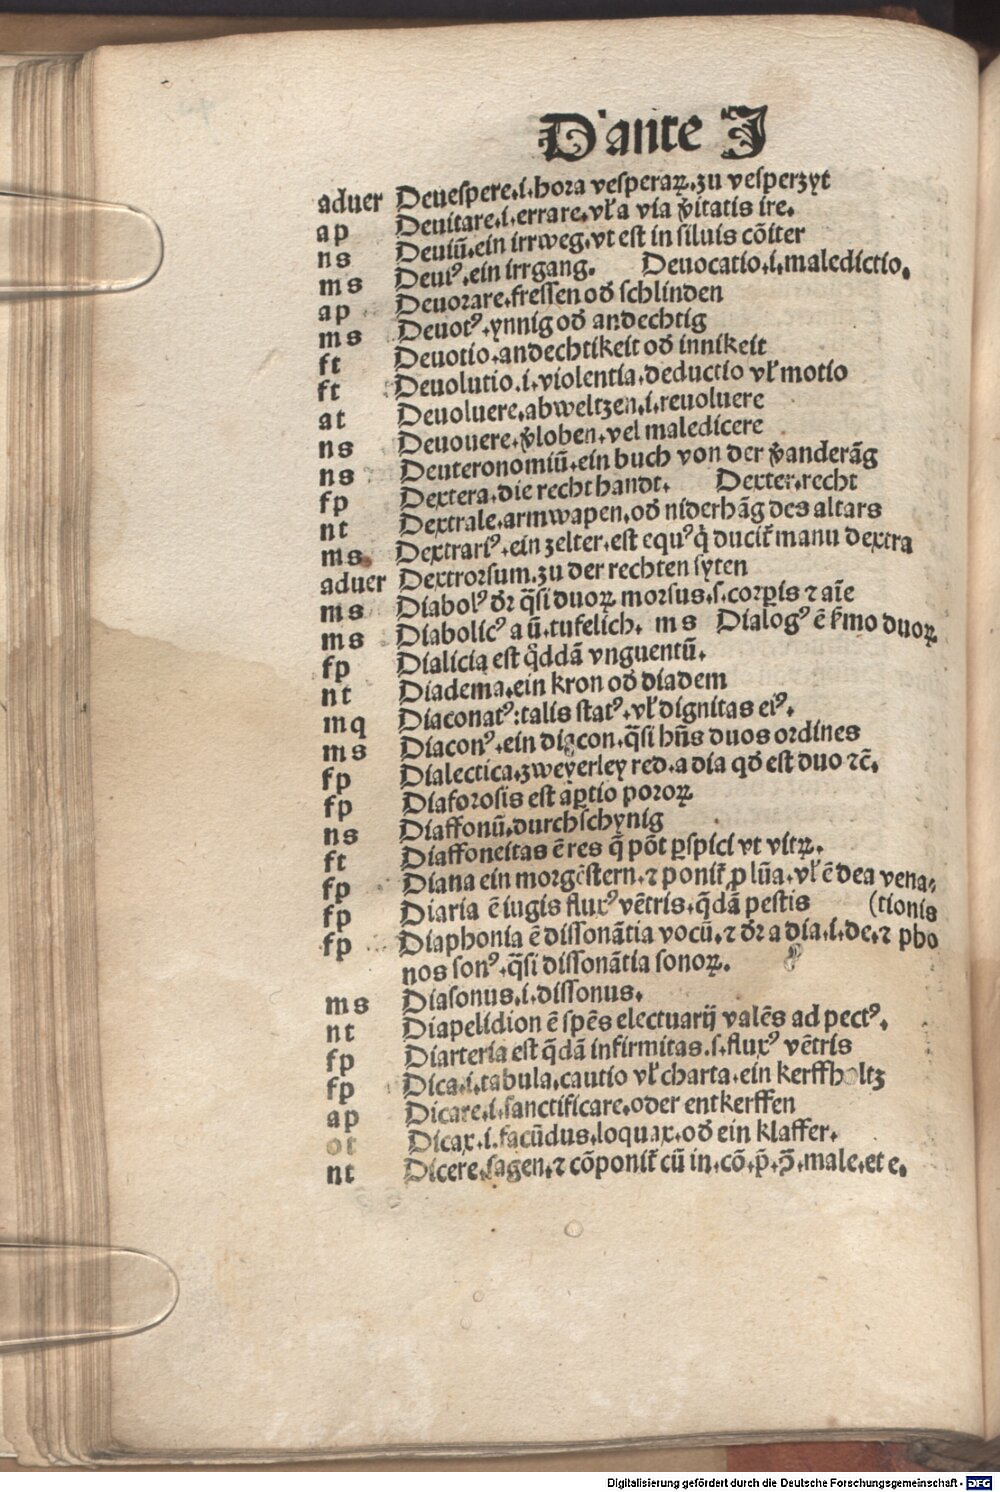 D ante I
aduer Deuespere.i.hora vesperaꝝ.zu vesperzyt
ap Deuitare.i.errare.vł a via v̾itatis ire.
ns Deuiū.ein irrweg.vt est in siluis cōiter
ms Deuiꝰ.ein irrgang. Deuocatio.i.maledictio.
ap Deuorare.fressen od̾ schlinden
ms Deuotꝰ.ynnig od̾ andechtig
ft Deuotio.andechtikeit od̾ innikeit
ft Deuolutio.i.violentia.deductio vł motio
at Deuoluere.abweltzen.i.reuoluere
ns Deuouere.v̾loben.vel maledicere
ns Deuteronomiū.ein buch von der v̾anderāg
fp Dextera.die recht handt. Dexter.recht
nt Dextrale.armwapen.od̾ niderhāg des altars
ms Dextrariꝰ.ein zelter.est equꝰ q̇ ducit̃ manu dextra
aduer Dextrorsum.zu der rechten syten
ms Diabolꝰ dr̃ q̄si duoꝝ morsus.s.corꝑis ⁊ aīe
ms Diabolicꝰ a ū.tufelich. ms Dialogꝰ ē s̃mo duoꝝ
fp Dialicia est q̄ddā vnguentū.
nt Diadema.ein kron od̾ diadem
mq Diaconatꝰ:talis statꝰ.vł dignitas eiꝰ.
ms Diaconꝰ.ein diacon.q̄si hñs duos ordines
fp Dialectica.zweyerley red.a dia qd̾ est duo ⁊c̄.
fp Diaforosis est aꝑtio poroꝝ
ns Diaffonū.durchschynig
ft Diaffoneitas ē res q̄ pōt ꝑspici vt vitꝝ.
fp Diana ein morgēstern.⁊ ponit̃ ꝓ lūa.vł ē dea vena⸗
fp Diaria ē iugis fluxꝰ vētris.q̄dā pestis (tionis
fp Diaphonia ē dissonātia vocū.⁊ dr̃ a dia.i.de.⁊ pho
nos sonꝰ.q̄si dissonātia sonoꝝ.
ms Diasonus.i.dissonus.
nt Diapelidion ē spēs electuarij valēs ad pectꝰ.
fp Diarteria est q̄dā infirmitas.s.fluxꝰ vētris
fp Dica.i.tabula.cautio vł charta.ein kerffholtz
ap Dicare.i.sanctificare.oder entkerffen
ot Dicax.i.facūdus.loquax.od̾ ein klaffer.
nt Dicere.sagen.⁊ cōponit̃ cū in.cō.p̄.ꝓ̄.male.et e.
Digitalisierung gefördert durch die Deutsche Forschungsgemeinschaft - DFG